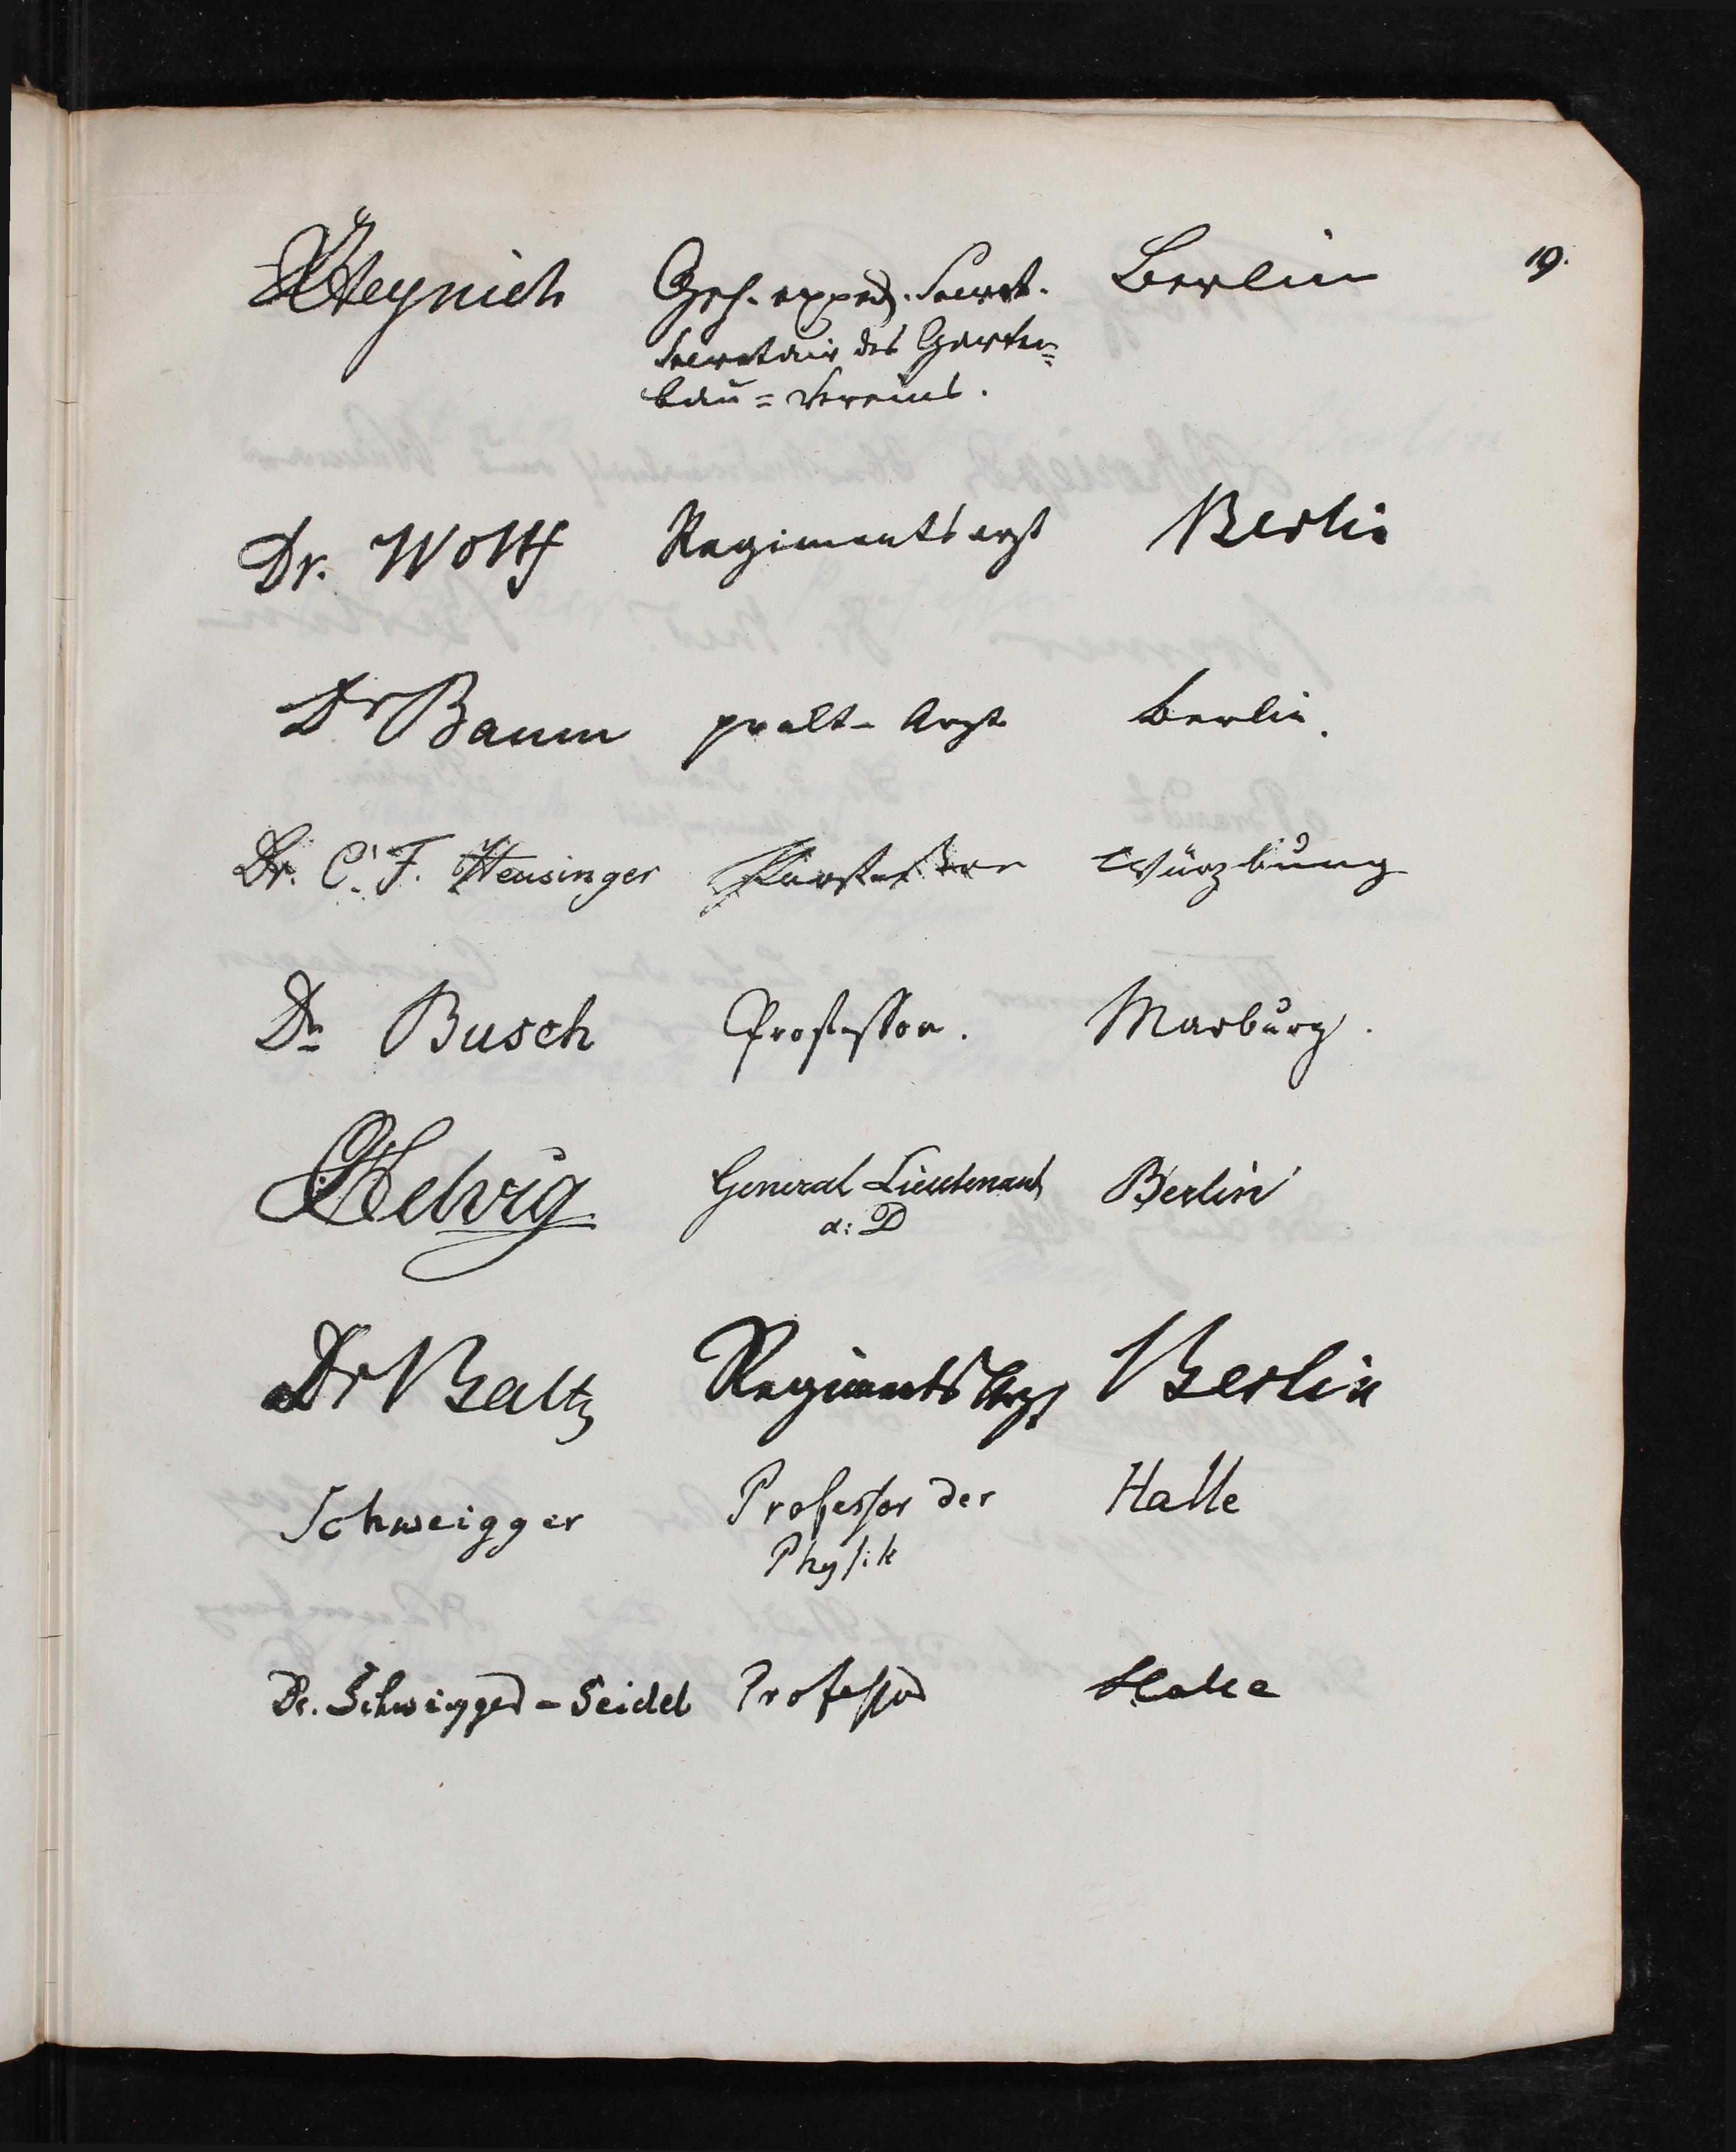 19.
Heynich Geh. exped. Secret. Berlin
Secretair des Garten=
bau=Vereins.
Dr. Wolff Regimentsarzt Berlin
Dr Baum prakt. Arzt Berlin.
Dr. C. F. Heusinger Professor Würzburg
Dr Busch Professor. Marburg.
Helvig General Lieutenant Berlin
a: D
Dr Baltz Regimentsarzt Berlin
Schweigger Professor der Halle
Physik
Dr. Schweigger-Seidel Professor Halle